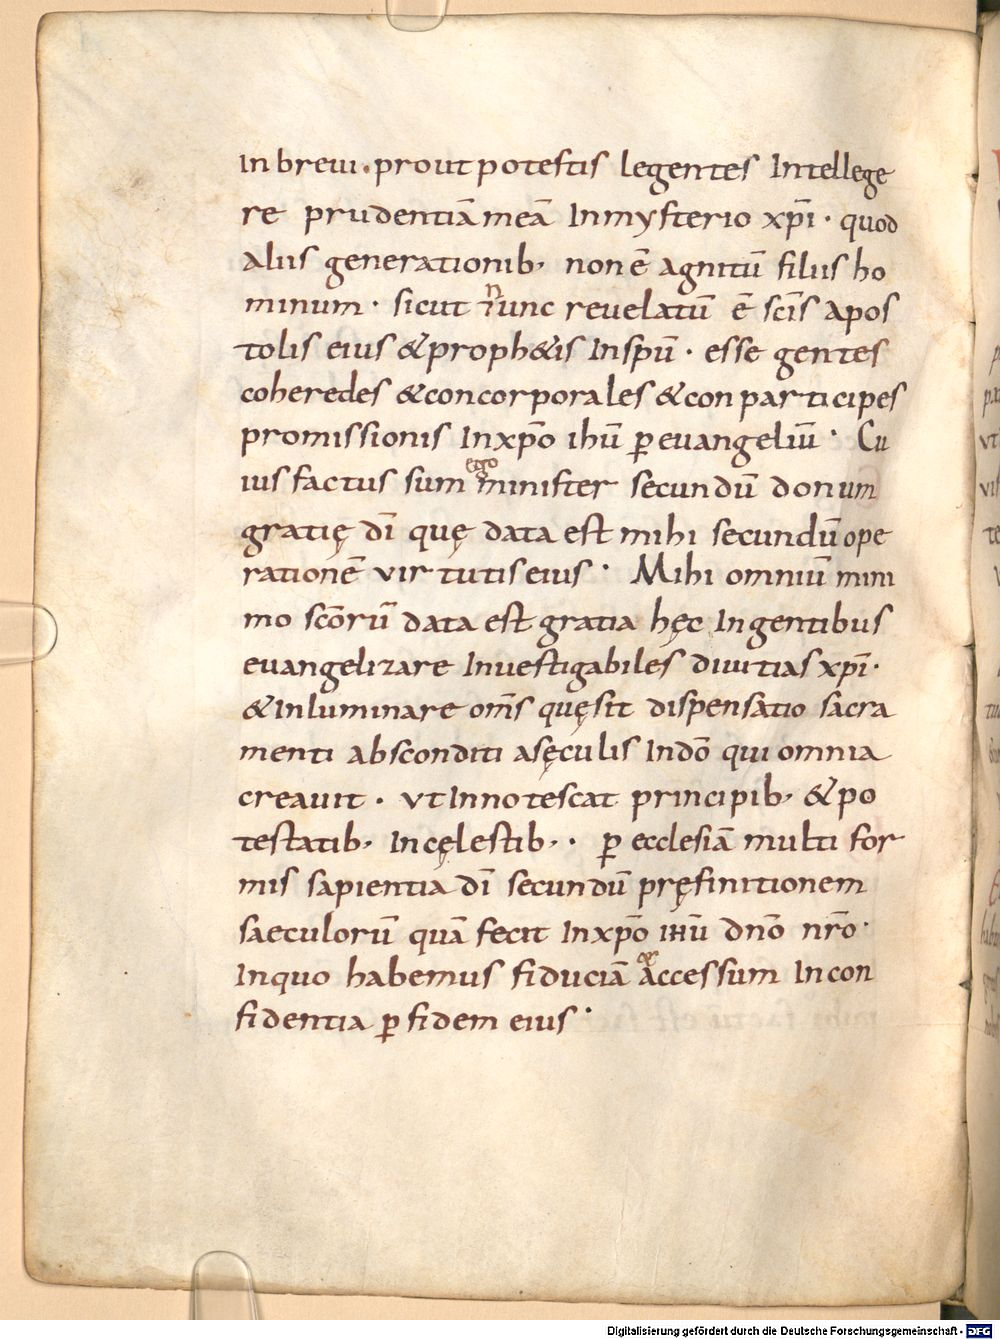 In breui . prout potestis legentes Intellege
re prudentiā meā In mysterio xp̄i · quod
aliis generationib; non ē agnitū filiis ho
minum · sicut nunc reuelatū ē sc̄is apos
tolis eius & proph&is In spū · esse gentes
coheredes & concorporales & conparticipes
promissionis In xp̄o ihū p̄ euangeliū · Cu
ius factus sum ego minister secundū donum
gratię dī quę data est mihi secundū ope
rationē uirtutis eius · Mihi omniū mini
mo sc̄orū data est gratia hęc In gentibus
euangelizare Inuestigabiles diuitias xp̄i ·
& Inluminare om̄s quę sit dispensatio sacra
menti absconditi a sęculis In dō qui omnia
creauit · vt Innotescat principib; & po
testatib; In cęlestib; · p̄ ecclesiā multifor
mis sapientia dī secundū pręfinitionem
saeculorū quā fecit In xp̄o ihū dn̄o nr̄o ·
In quo habemus fiduciā & accessum In con
fidentia p̄ fidem eius ·
Digitalisierung gefördert durch die Deutsche Forschungsgemeinschaft - DFG